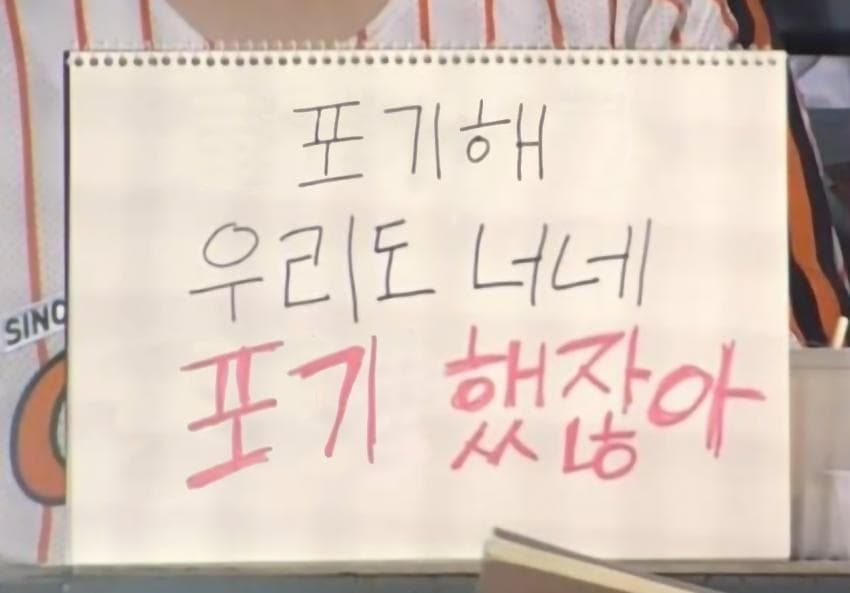 포기해
우리도 너네
포기 했잖아
SINC